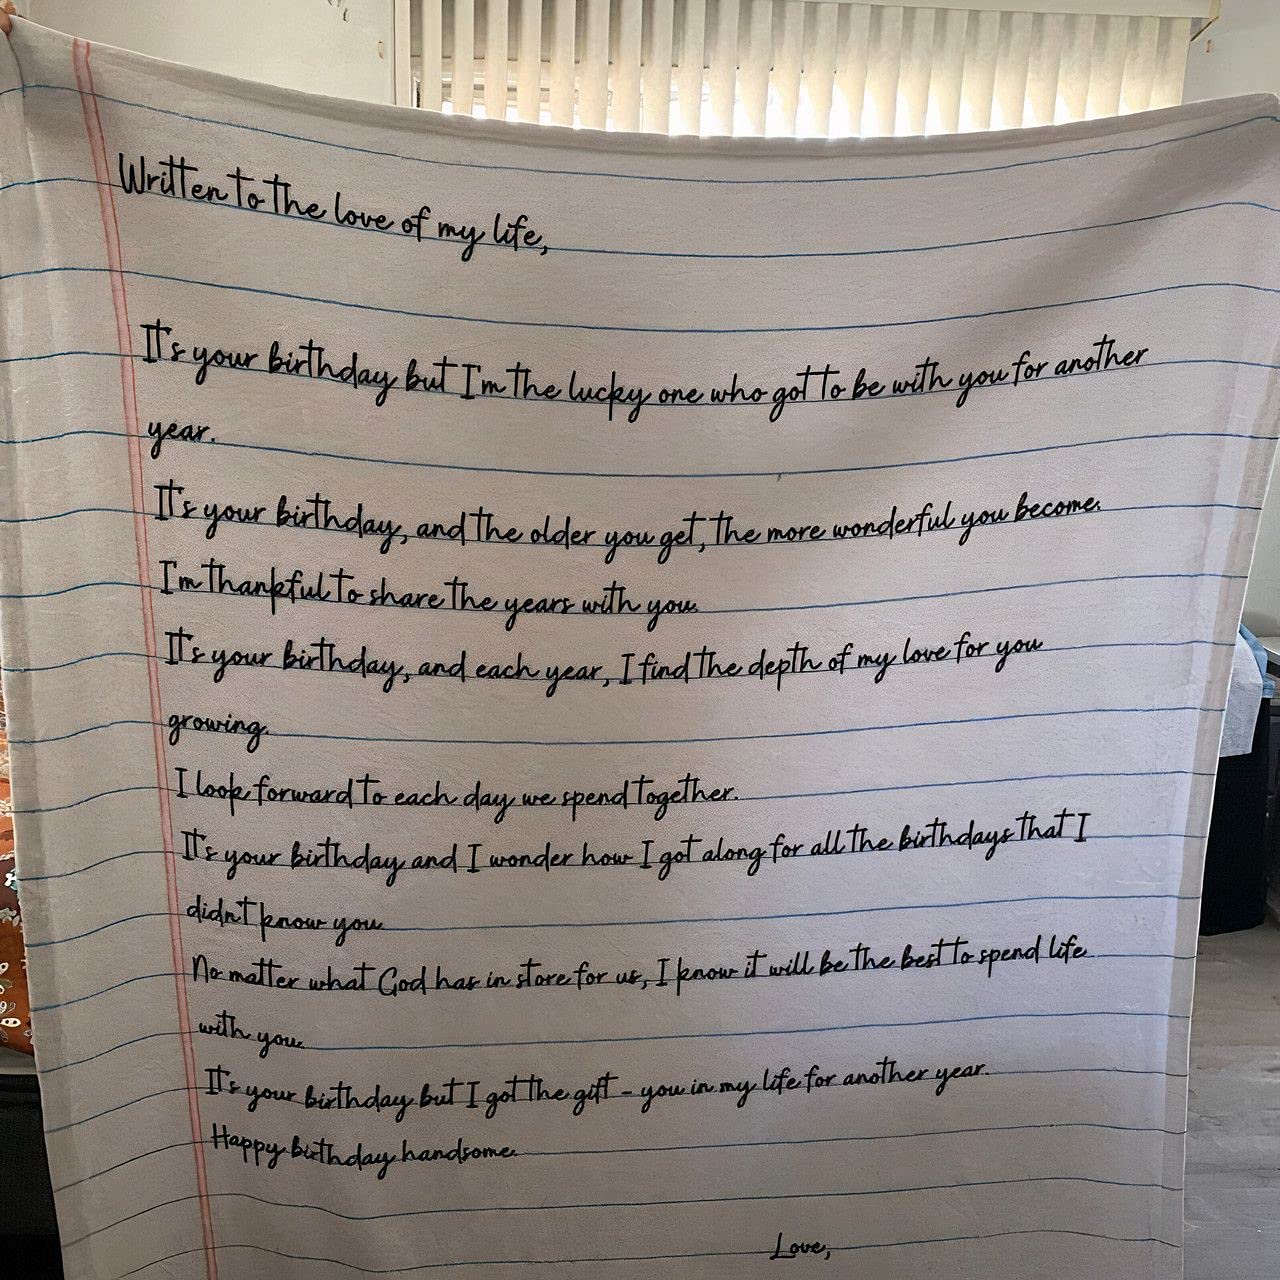 Written to the love of my life,
It's your birthday but I'm the lucky one who got to be with you for another
year.
It's your birthday, and the older you get, the more wonderful you become.
I'm thankful to share the years with you.
It's your birthday, and each year, I find the depth of my love for you
growing.
I look forward to each day we spend together.
It's your birthday and I wonder how I got along for all the birthdays that I
didn't know you.
No matter what God has in store for us, I know it will be the best to spend life
with you.
It's your birthday but I got the gift - you in my life for another year.
Happy birthday handsome.
Love,